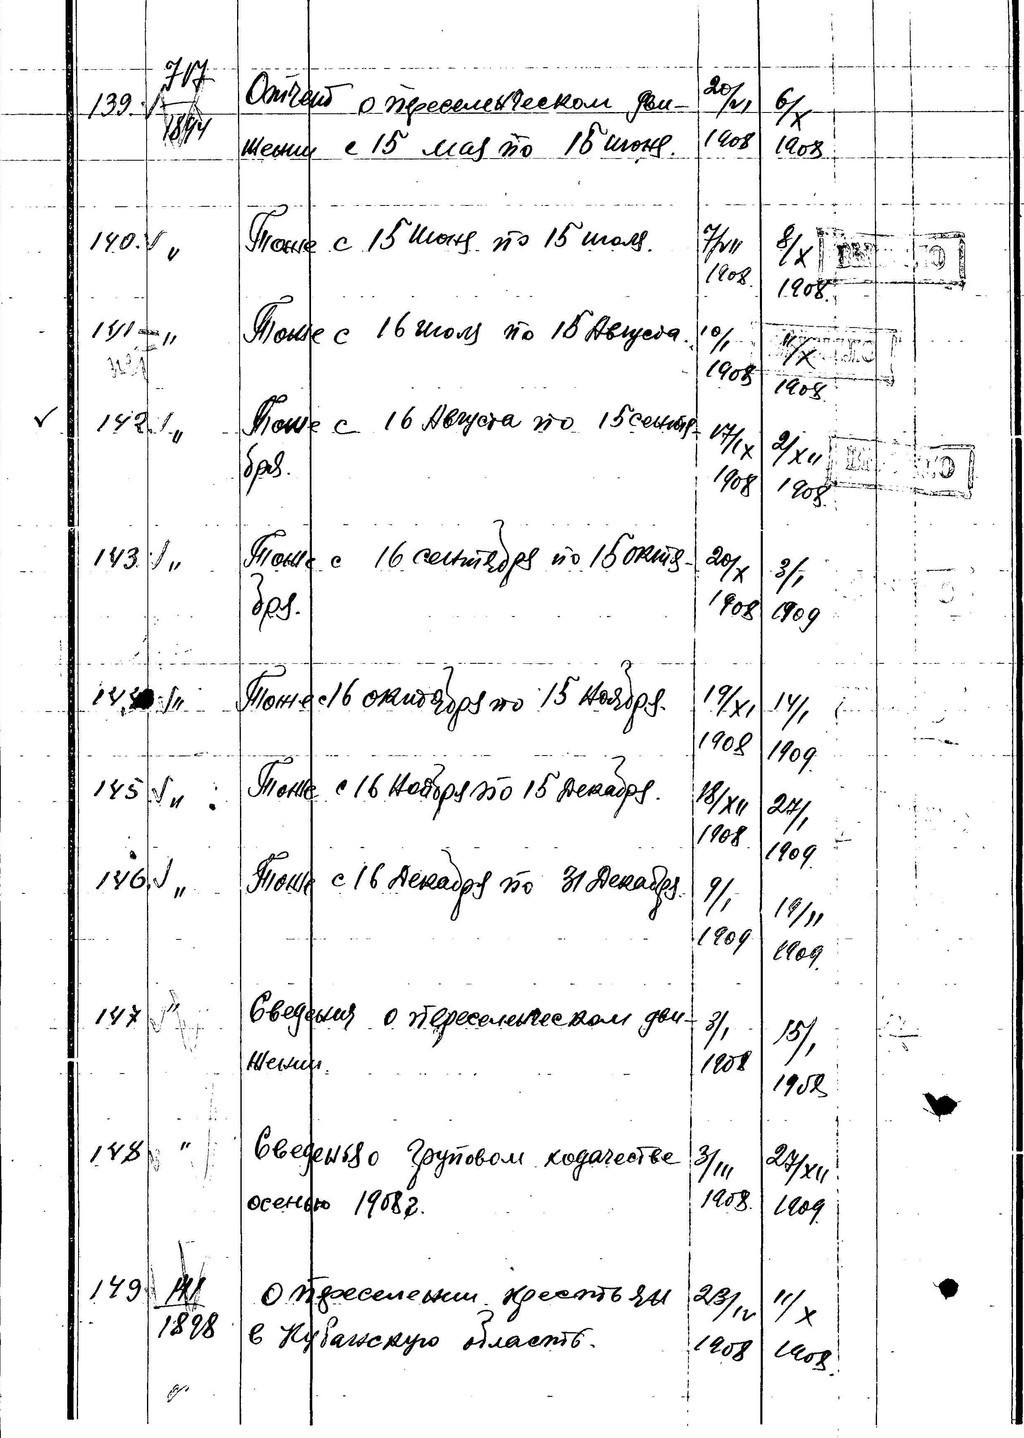 717
139. Отчет о переселенческом дви- 20/VI 6/X
1894
жении с 15 мая по 15 июня. 1908 1908
140. " Тоже с 15 Июня по 15 июля. 7/VII 8/X
1908. 1908.
141 " Тоже с 16 июля по 15 Августа. 10/ 11/X
1908 1908
142. " Тоже с 16 Августа по 15 сентя- 17/IX 2/XII
бря. 1908 1908
143. " Тоже с 16 сентября по 15 октя- 20/X 3/I
бря. 1908 1909
144 " Тоже с 16 октября по 15 Ноября. 19/XI 14/I
1908 1909.
145 " Тоже с 16 Ноября по 15 Декабря. 18/XII 27/I
1908 1909
146. " Тоже с 16 Декабря по 31 Декабря 9/I 19/II
1909 1909.
147 " Сведения о переселенческом дви- 3/I 15/I
жении. 1908 1908
148 " Сведения о груповом ходачестве 3/III 27/XII
осенью 1908 г. 1908. 1909
149 О переселении крестьян 23/IV 11/X
1898 в Кубанскую область. 1908 1908.